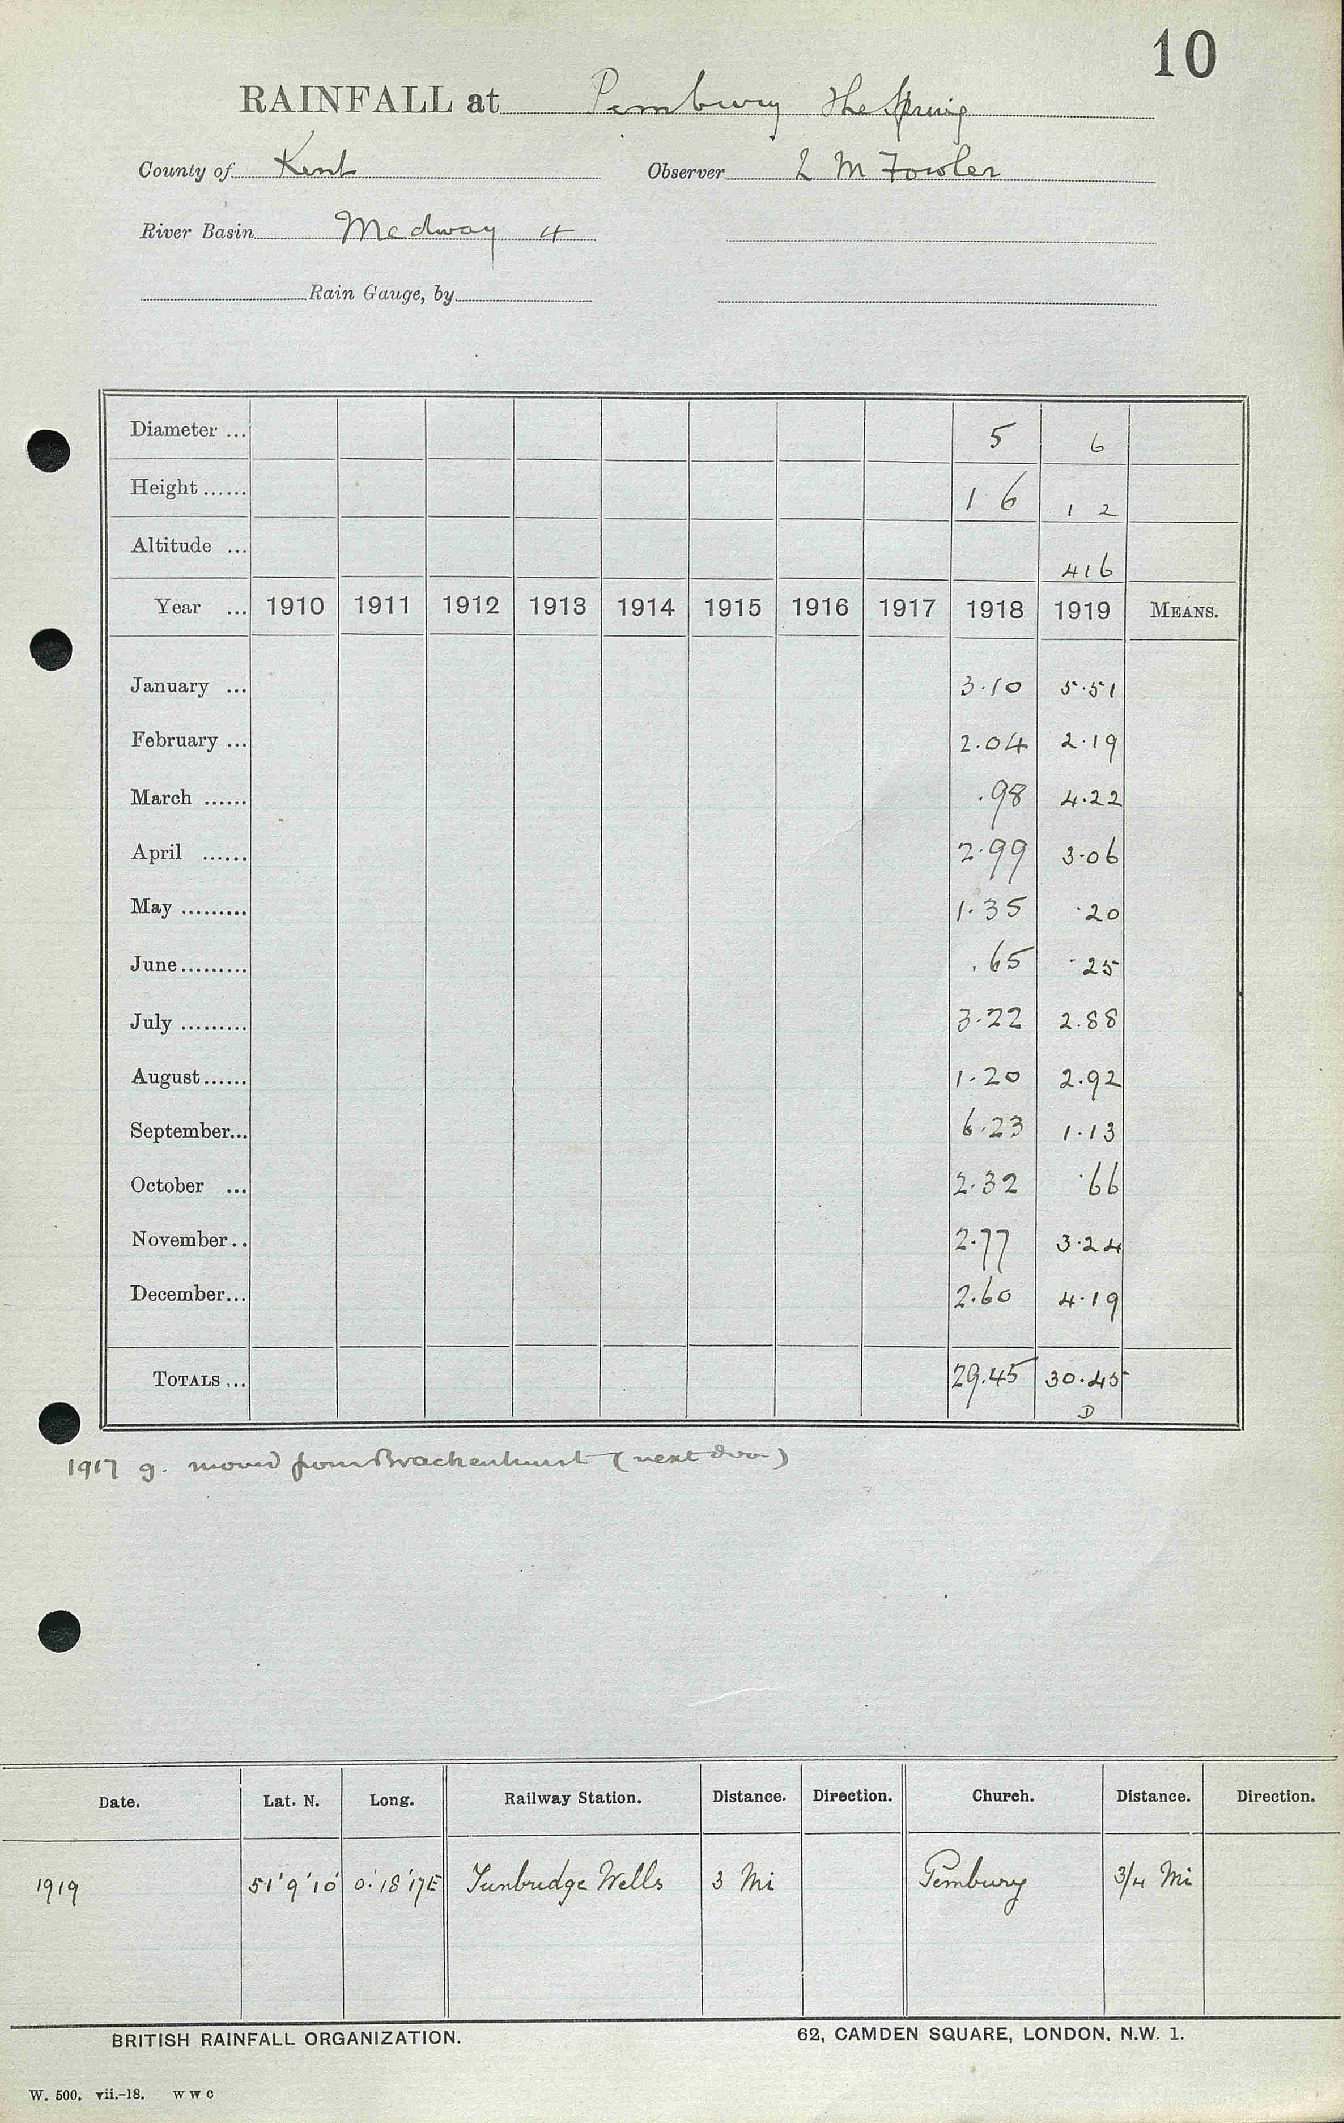 10
RAINFALL at Pembury The Spring
County of Kent Observer L M Fowler
River Basin Medway 4
Rain Gauge, by
Diameter ... 5 6
Height ...... 1 6 1 2
Altitude ... 416
Year ... 1910 1911 1912 1913 1914 1915 1916 1917 1918 1919 MEANS.
January ... 3.10 5.51
February ... 2.04 2.19
March ...... .98 4.22
April ...... 2.99 3.06
May ......... 1.35 .20
June ......... .65 .25
July ......... 3.22 2.88
August ...... 1.20 2.92
September... 6.23 1.13
October ... 2.32 .66
November .. 2.77 3.24
December... 2.60 4.19
TOTALS ... 29.45 30.45
D
1917 g. moved from Brackenhurst (next door)
Date. Lat. N. Long. Railway Station. Distance. Direction. Church. Distance. Direction.
1919 51°9'10" 0°18'17E Tunbridge Wells 3 Mi Pembury 3/4 Mi
BRITISH RAINFALL ORGANIZATION. 62, CAMDEN SQUARE, LONDON. N.W. 1.
W. 500. vii.-18. W W C